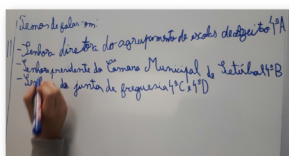 Temos de falar com:
- Senhora diretora do agrupamento de escolas de Azeitão 4ºA
- Senhor presidente da Câmara Municipal de Setúbal 4ºB
- Senhor da junta de freguesia 4ºC e 4ºD